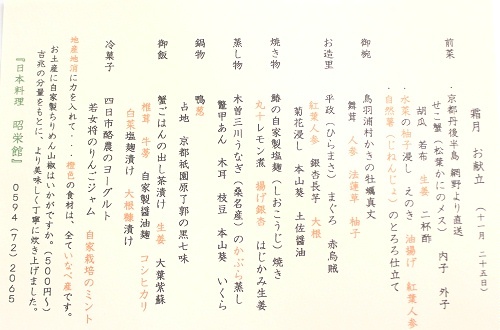 霜月　お献立　（十一月　二十五日）
前菜　．京都丹後半島　網野より直送
せこ蟹（松葉かにのメス）　内子　外子
胡瓜　若布　生姜　二杯酢
．水菜の柚子浸し　えのき　油揚げ　紅葉人参
．自然薯（じねんじょ）のとろろ仕立て
御椀　鳥羽浦村かきの牡蠣真丈
舞茸　人参　法蓮草　柚子
お造里　平政（ひらまさ）　まぐろ　赤烏賊
紅葉人参　銀杏長芋　大根
菊花浸し　本山葵　土佐醤油
焼き物　鰆の自家製塩麹（しおこうじ）焼き
丸十レモン煮　揚げ銀杏　はじかみ生姜
蒸し物　木曽三川うなぎ（桑名産）のかぶら蒸し
鼈甲あん　木耳　枝豆　本山葵　いくら
鍋物　鴨葱
占地　京都祇園原了郭の黒七味
御飯　蟹ごはんの出し茶漬け　生姜　大葉紫蘇
椎茸　牛蒡　自家製醤油麹　コシヒカリ
白菜塩麹漬け　大根糠漬け
冷菓子　四日市酪農のヨーグルト
若女将のりんごジャム　自家栽培のミント
地産地消に力を入れて・・橙色の食材は、全ていなべ産です。
お土産に自家製ちりめん山椒はいかがですか。（500円〜）
吉兆の分量をもとに、より美味しく丁寧に炊き上げました。
『日本料理　昭栄館』　0594（72）2065